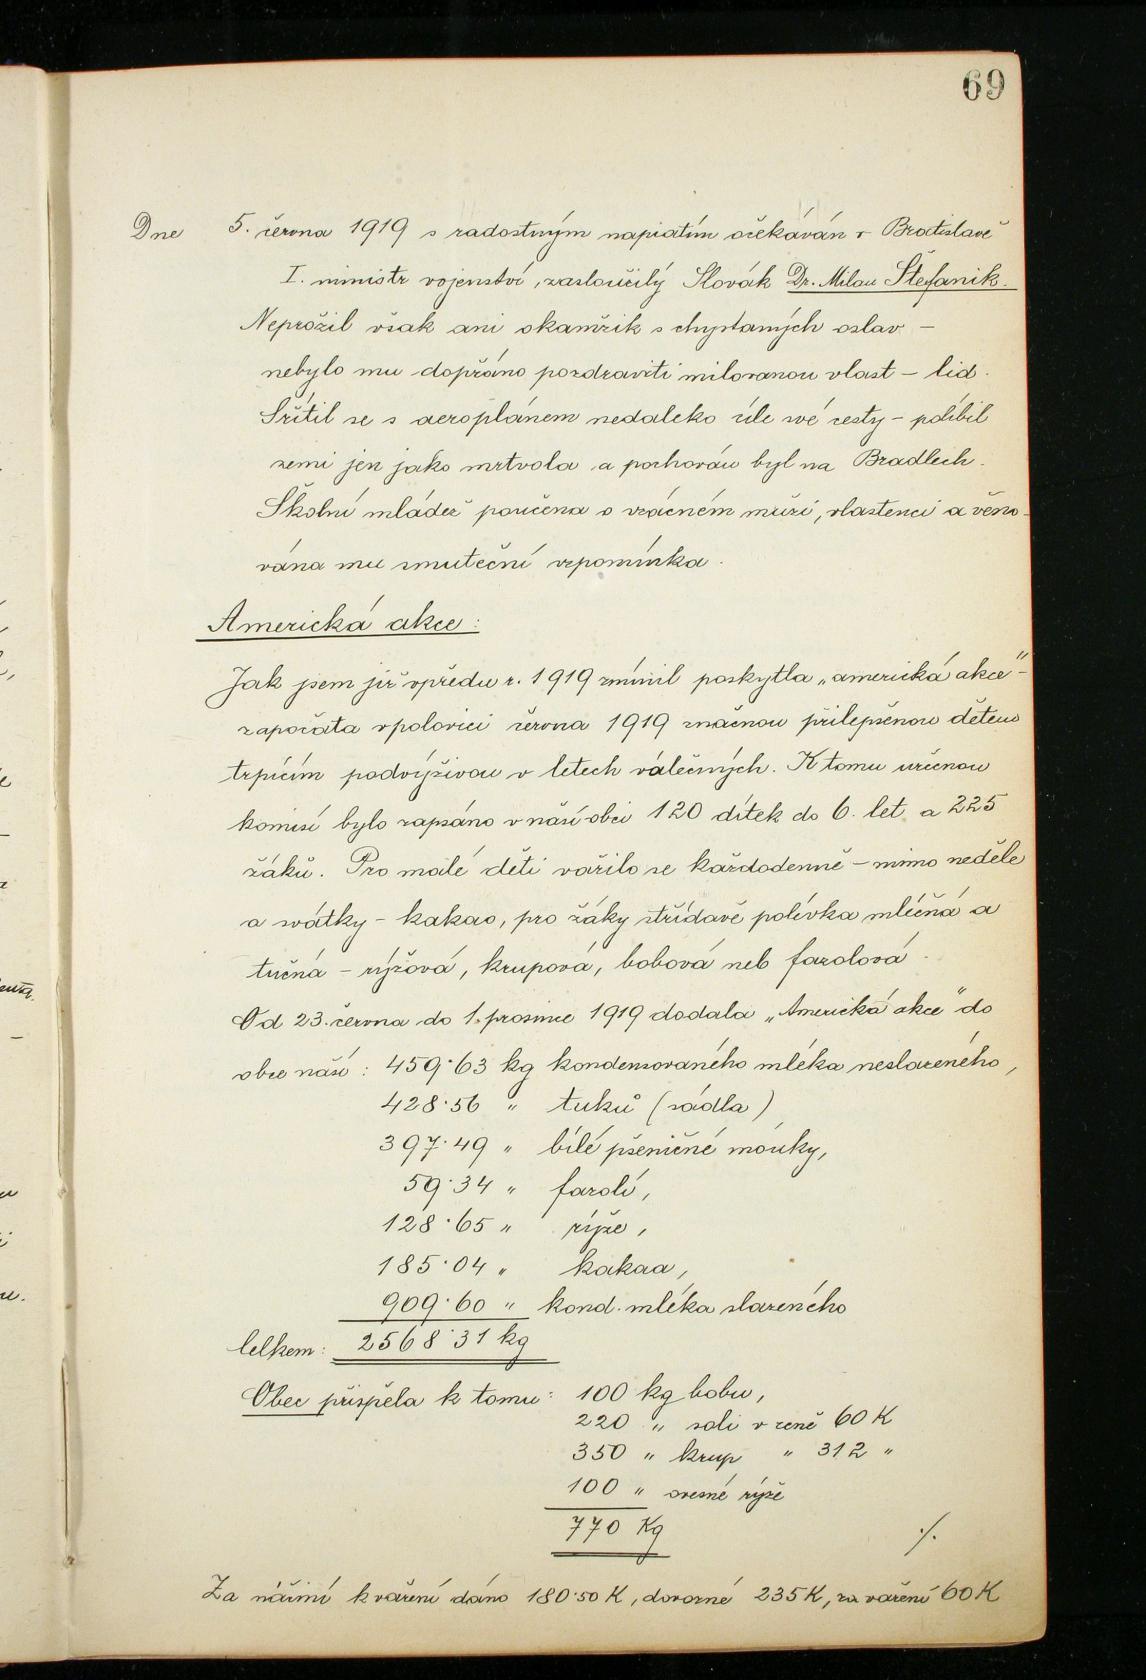 69
Dne 5. června 1919 s radostným napiatím očekáván v Bratislavě
I. ministr vojenství, zasloužilý Slovák Dr. Milan Štefanik.
Neprožil však ani okamžik s chystaných oslav –
nebylo mu dopřáno pozdraviti milovanou vlast – lid.
Sřítil se s aeroplánem nedaleko cíle své cesty – políbil
zemi jen jako mrtvola a pochován byl na Bradlech.
Školní mládež poučena o vzácném muži, vlastenci a věno-
vána mu smuteční vzpomínka.
Americká akce:
Jak jsem již vpředu r. 1919 zmínil poskytla „americká akce" –
započata v polovici června 1919 značnou přilepšenou dětem
trpícím podvýživou v letech válečných. K tomu určenou
komisí bylo zapsáno v naší obci 120 dítek do 6. let a 225
žáků. Pro malé děti vařilo se každodenně – mimo neděle
a svátky – kakao, pro žáky střídavě polévka mléčná a
tučná – rýžová, krupová, bobová neb fazolová.
Od 23. června do 1. prosince 1919 dodala „Americká akce" do
obce naší: 459·63 kg kondensovaného mléka neslazeného,
428·56 „ tuků (sádla)
397·49 „ bílé pšeničné mouky,
59·34 „ fazolí,
128·65 „ rýže,
185·04 „ kakaa,
909·60 „ kond. mléka slazeného
Celkem: 2568·31 kg
Obec přispěla k tomu: 100 kg bobu,
220 „ soli v ceně 60 K
350 „ krup „ 312 „
100 „ ovesné rýže
770 Kg
./.
Za náčiní k vaření dáno 180·50 K, dovozné 235 K, za vaření 60 K